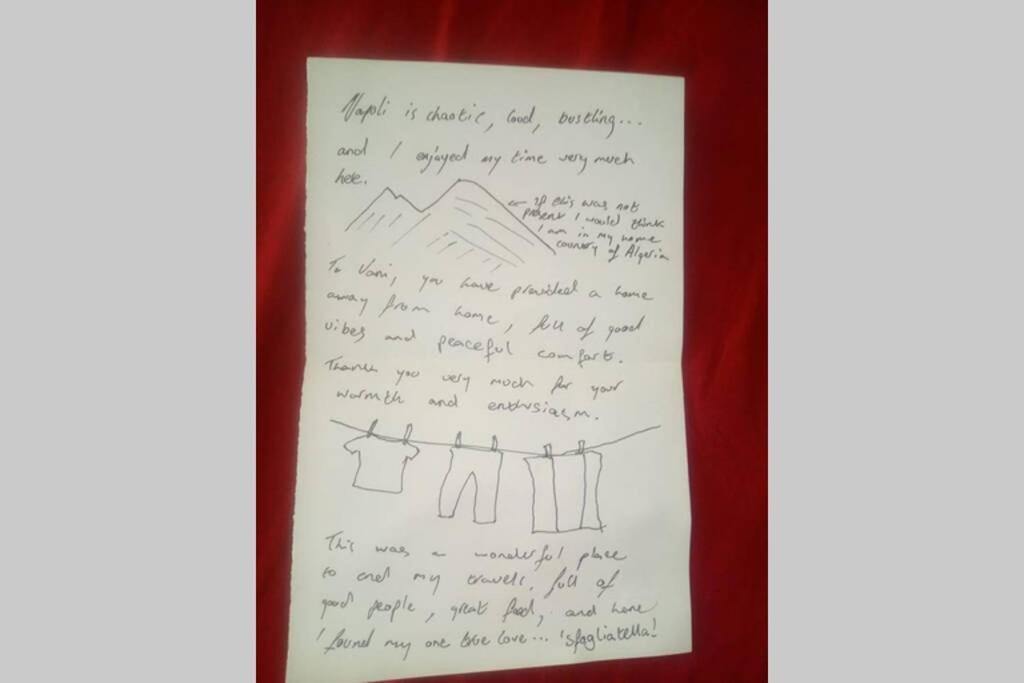 Napoli is chaotic, loud, bustling...
and I enjoyed my time very much
here.
← If this was not
present I would think
I am in my home
country of Algeria
To Vani, you have provided a home
away from home, full of good
vibes and peaceful comfort.
Thank you very much for your
warmth and enthusiasm.
This was a wonderful place
to end my travels, full of
good people, great food, and here
I found my one true love... 'sfogliatella!